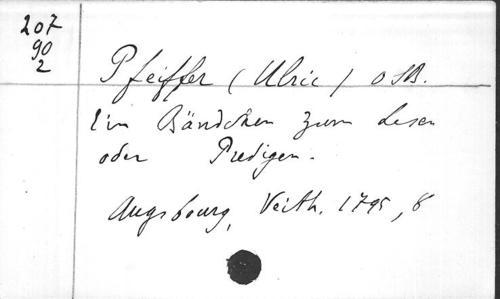 207
90
2
Pfeiffer (Ulric) OSB.
Ein Bändchen zum Lesen
oder Predigen.
Augsbourg, Veith. 1795, 8